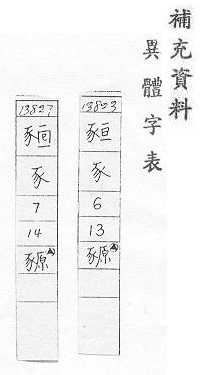 補充資料
異體字表
13823
豕
6
13
豲
13827
豕
7
14
豲